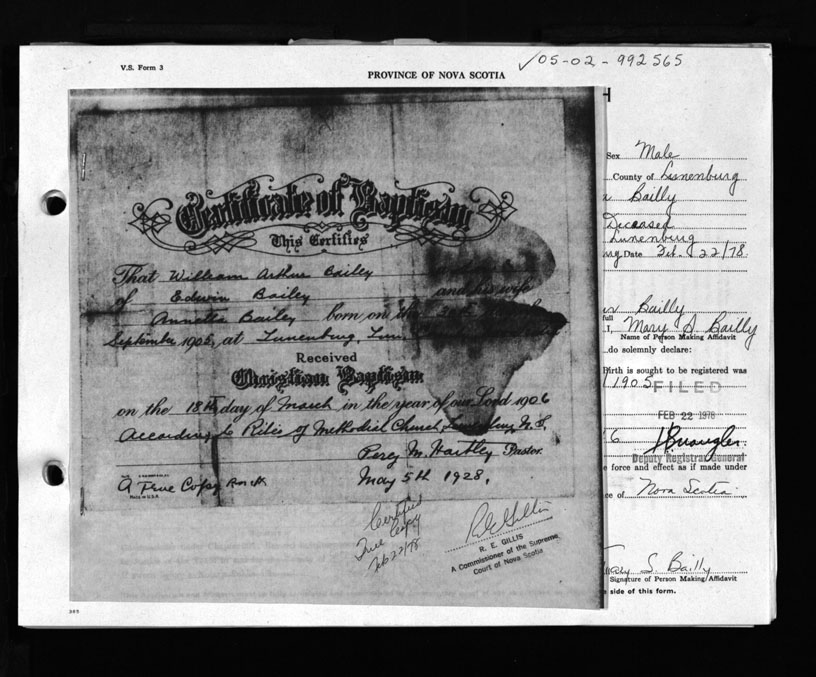 V.S. Form 3
PROVINCE OF NOVA SCOTIA
✓05-02-992565
Certificate of Baptism
This Certifies
That William Arthur Bailey
of Edwin Bailey and his wife
Annetta Bailey born on the
September 1905, at Lunenburg, Lun.
Received
Christian Baptism
on the 18th day of March in the year of our Lord 1906
According to Rites of Methodist Church, Lunenburg N.S.
Percy M. Hartley Pastor.
May 5th 1928.
A True Copy
Made in U.S.A.
Certified
True Copy
Feb 22/78
R E Gillis
R. E. GILLIS
A Commissioner of the Supreme
Court of Nova Scotia
Sex Male
County of Lunenburg
Bailly
Deceased
Lunenburg
Date Feb. 22/78
Bailly
full
I, Mary S Bailly
Name of Person Making Affidavit
do solemnly declare:
Birth is sought to be registered was
1905
FILED
FEB 22 1978
6
Deputy Registrar General
e force and effect as if made under
ce of Nova Scotia
Mary S. Bailly
Signature of Person Making Affidavit
e side of this form.